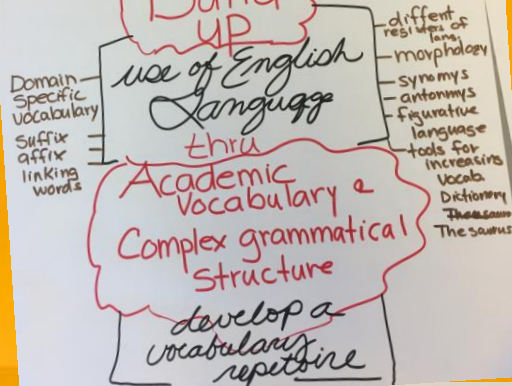 Build
up
use of English
Languagge
thru
Academic
Vocabulary &
Complex grammatical
Structure
develop a
vocabulary
repetoire
Domain
Specific
vocabulary
Suffix
affix
linking
words
diffent
registers of
lang.
morphology
synomys
antonmys
figurative
language
tools for
increasing
vocab
Dictionary
Thesaurus